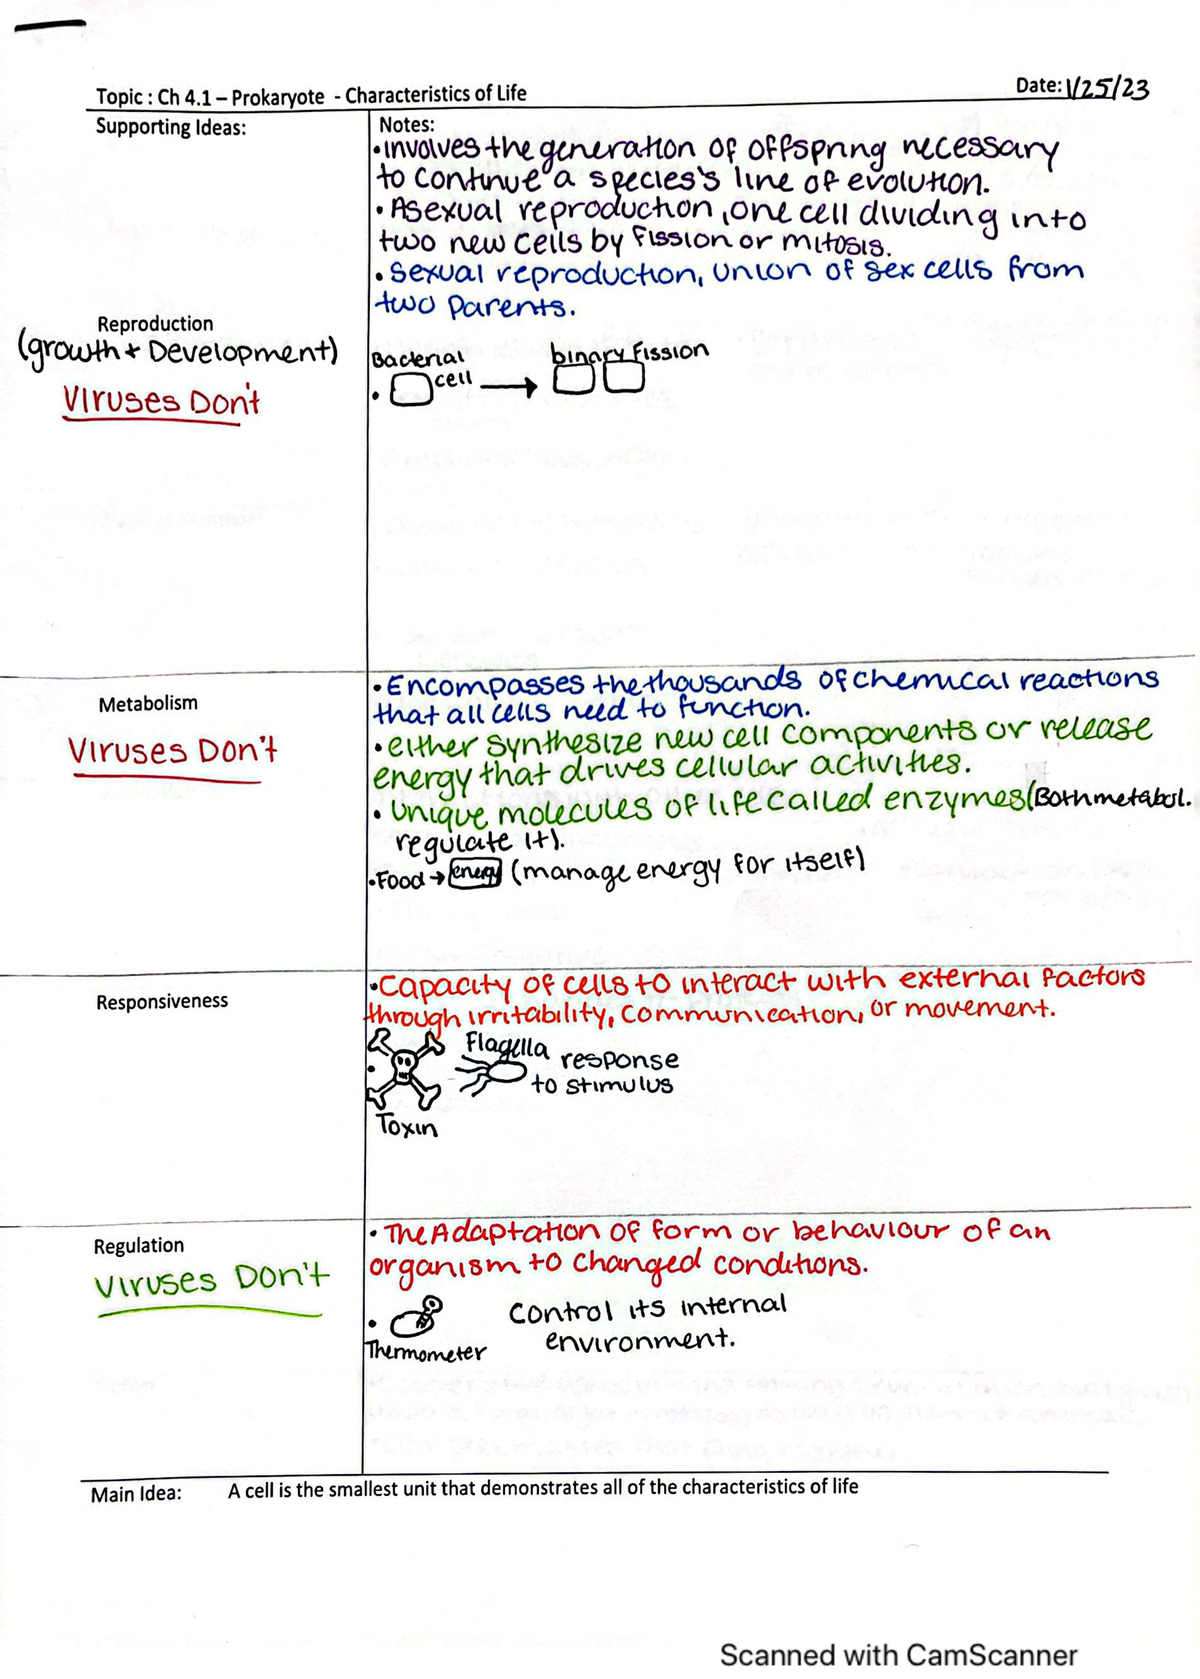 Topic : Ch 4.1 – Prokaryote - Characteristics of Life
Date: 1/25/23
Supporting Ideas:
Notes:
•involves the generation of offspring necessary
to continue a species's line of evolution.
• Asexual reproduction, one cell dividing into
two new cells by fission or mitosis.
• Sexual reproduction, union of sex cells from
two parents.
Reproduction
(growth + Development)
Viruses Don't
Bacterial
cell
binary fission
Metabolism
Viruses Don't
• Encompasses the thousands of chemical reactions
that all cells need to function.
• either synthesize new cell components or release
energy that drives cellular activities.
• Unique molecules of life called enzymes (Both metabol.
regulate it).
•Food → energy (manage energy for itself)
Responsiveness
•Capacity of cells to interact with external factors
through irritability, communication, or movement.
Flagella
response
to stimulus
Toxin
Regulation
Viruses Don't
• The Adaptation of form or behaviour of an
organism to changed conditions.
Control its internal
environment.
Thermometer
Main Idea: A cell is the smallest unit that demonstrates all of the characteristics of life
Scanned with CamScanner